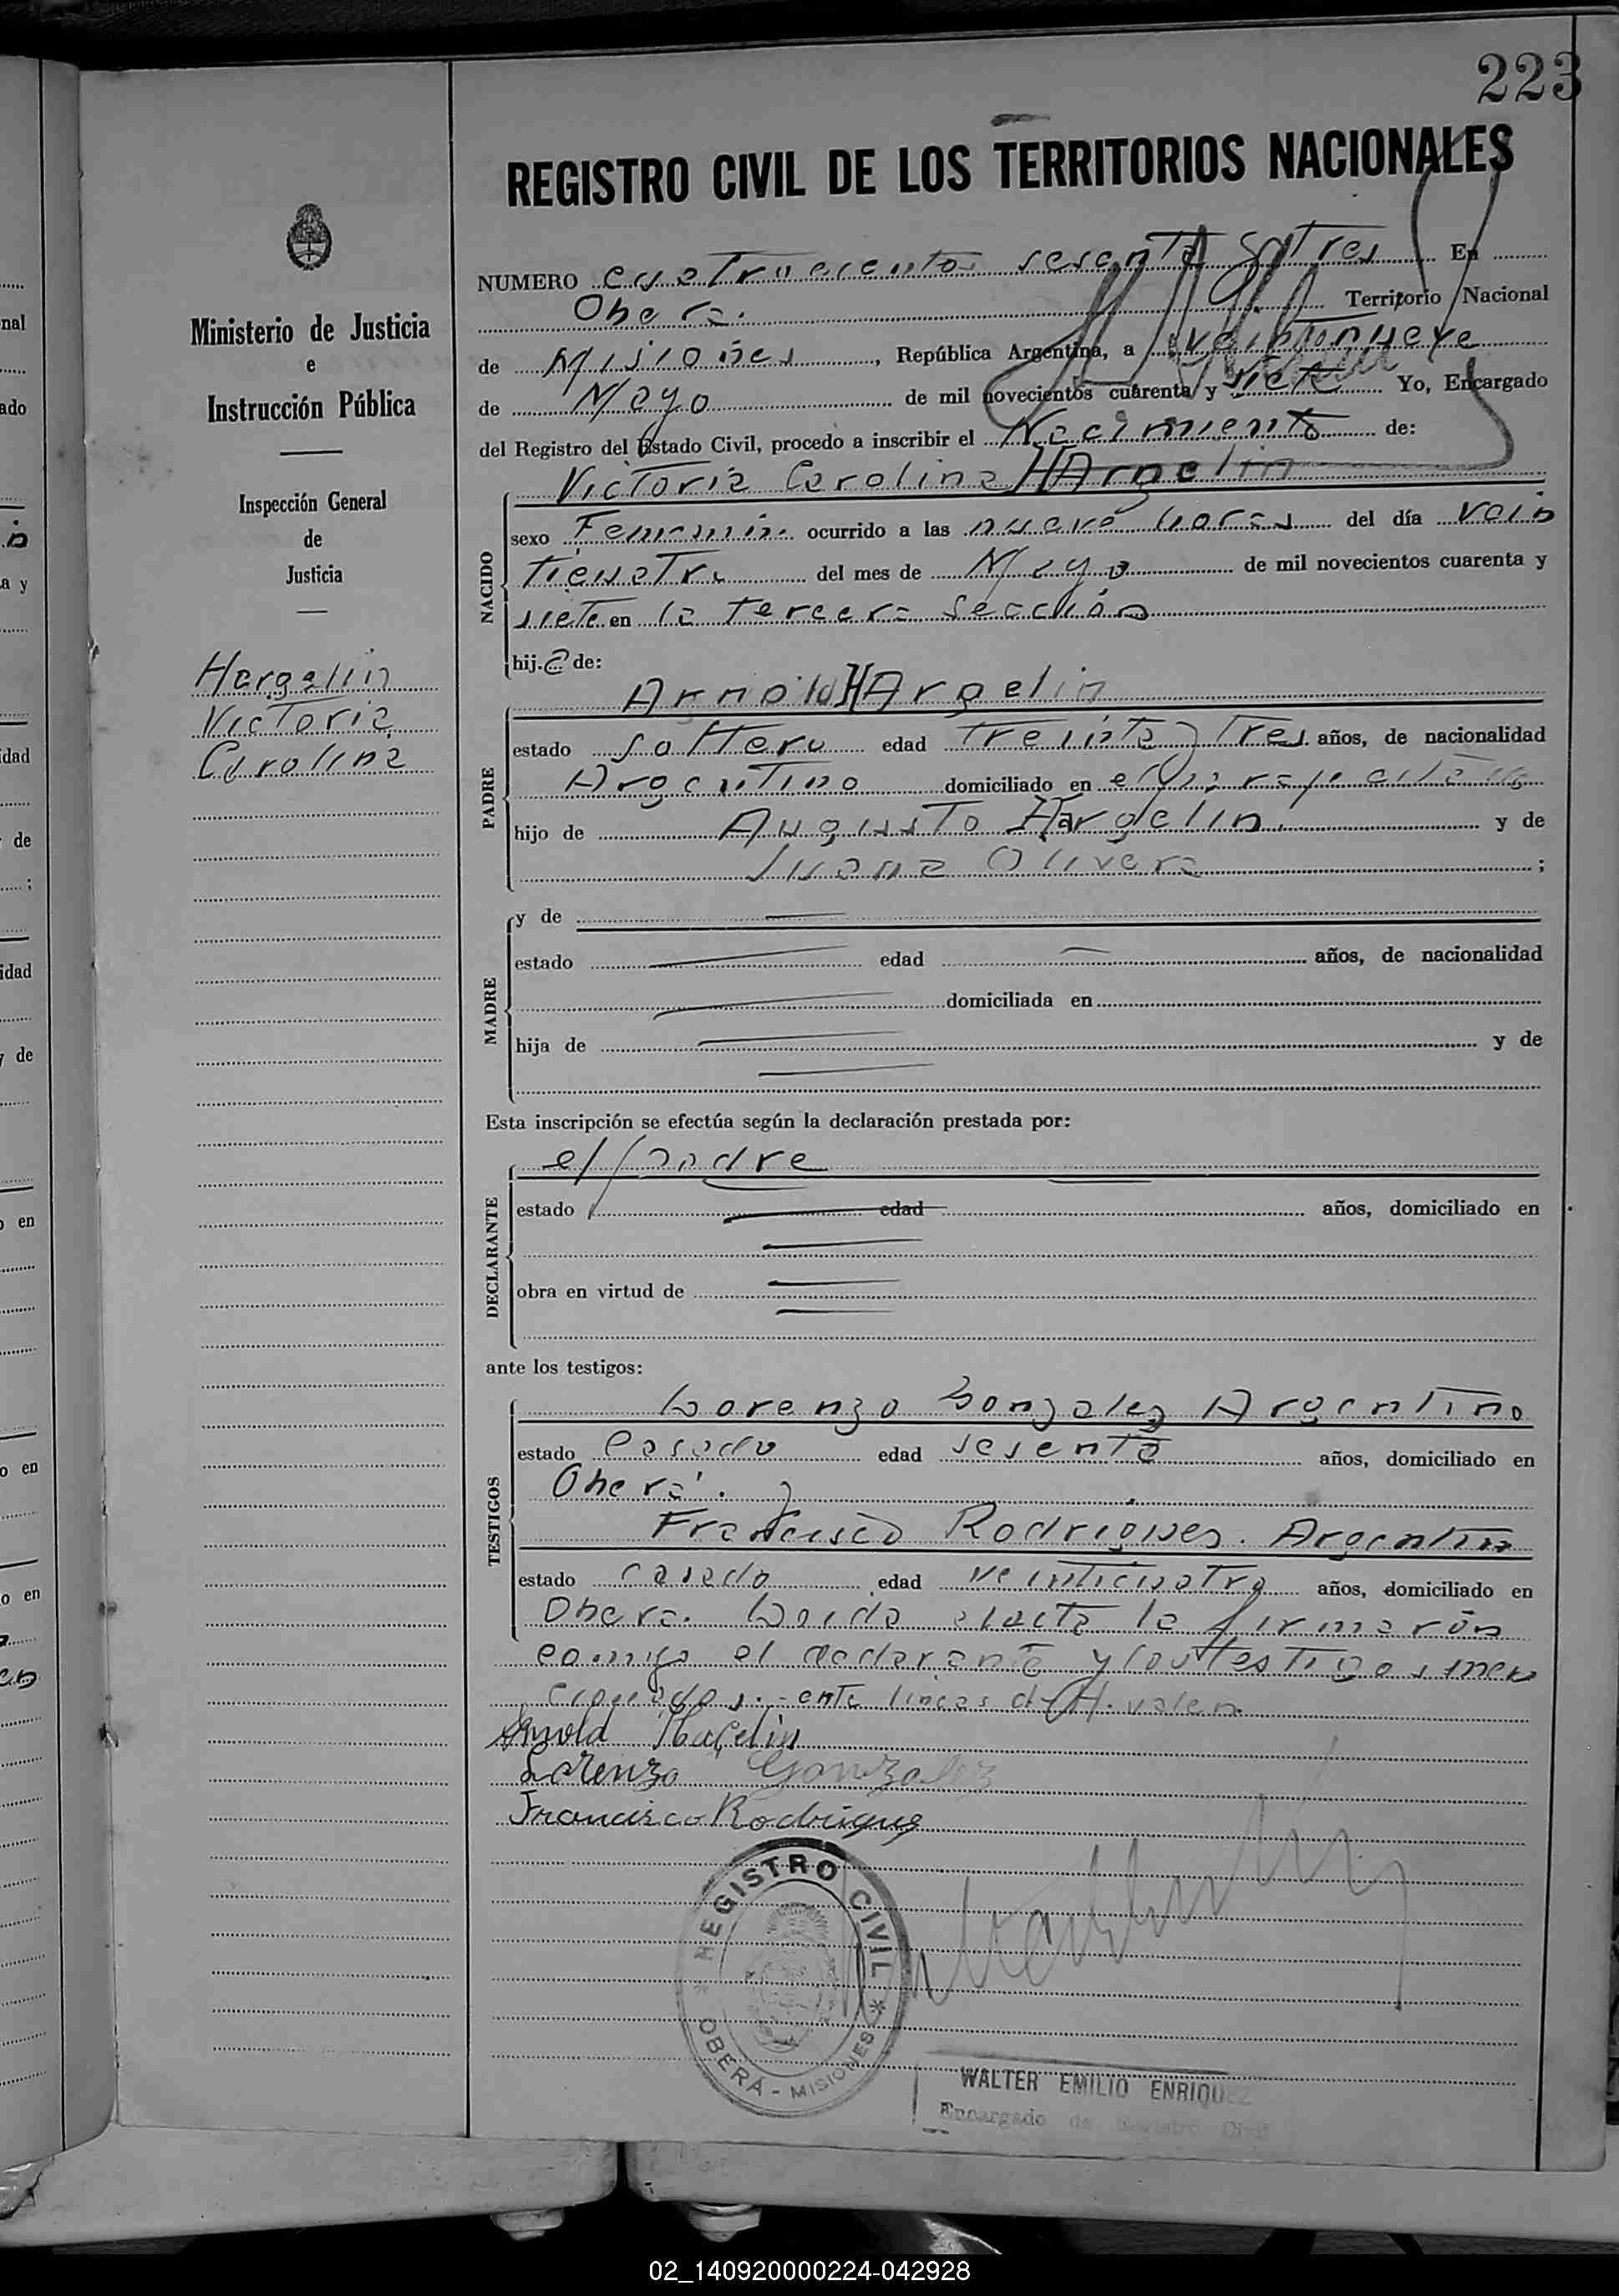 223
REGISTRO CIVIL DE LOS TERRITORIOS NACIONALES
NUMERO cuatrocientos sesenta y tres En
Oberá. Territorio Nacional
de Misiones, República Argentina, a veintinueve
de Mayo de mil novecientos cuarenta y siete Yo, Encargado
del Registro del Estado Civil, procedo a inscribir el Nacimiento de:
Victoria Carolina HArgelin
NACIDO
sexo Femenino ocurrido a las nueve horas del día vein
ticuatro del mes de Mayo de mil novecientos cuarenta y
siete en la tercera Sección
hija de:
PADRE
Arnoldo HArgelin
estado soltero edad treinta y tres años, de nacionalidad
Argentino domiciliado en el paraje citado
hijo de Augusto Hargelin y de
Juana Olivera ;
MADRE
y de
estado edad años, de nacionalidad
domiciliada en
hija de y de
Esta inscripción se efectúa según la declaración prestada por:
DECLARANTE
el padre
estado edad años, domiciliado en
obra en virtud de
ante los testigos:
TESTIGOS
Lorenzo Gonzalez Argentino
estado Casado edad sesenta años, domiciliado en
Oberá. y
Francisco Rodriguez. Argentino
estado casado edad veinticuatro años, domiciliado en
Oberá. Leida el acta la firmarón
conmigo el declarante y los testigos men
cionados.- entre lineas d-H. valen.
Arnoldo Hargelin
Lorenzo Gonzalez
Francisco Rodriguez
REGISTRO CIVIL
OBERÁ - MISIONES
WALTER EMILIO ENRIQUEZ
Encargado de Registro Civil
Ministerio de Justicia
e
Instrucción Pública
Inspección General
de
Justicia
Hargelin
Victoria
Carolina
02_140920000224-042928